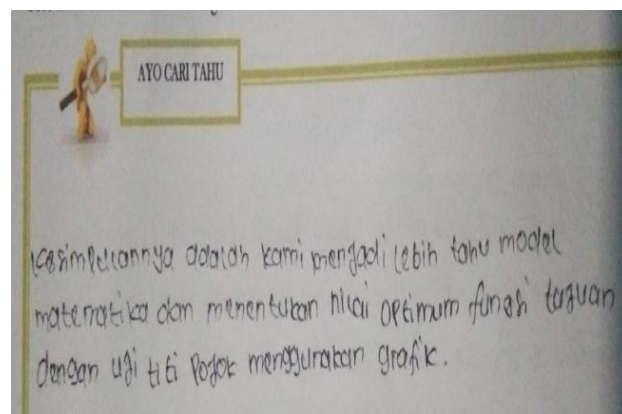 AYO CARI TAHU
Kesimpulannya adalah kami menjadi lebih tahu model
matematika dan menentukan nilai optimum fungsi tujuan
dengan uji titi pojok menggunakan grafik.